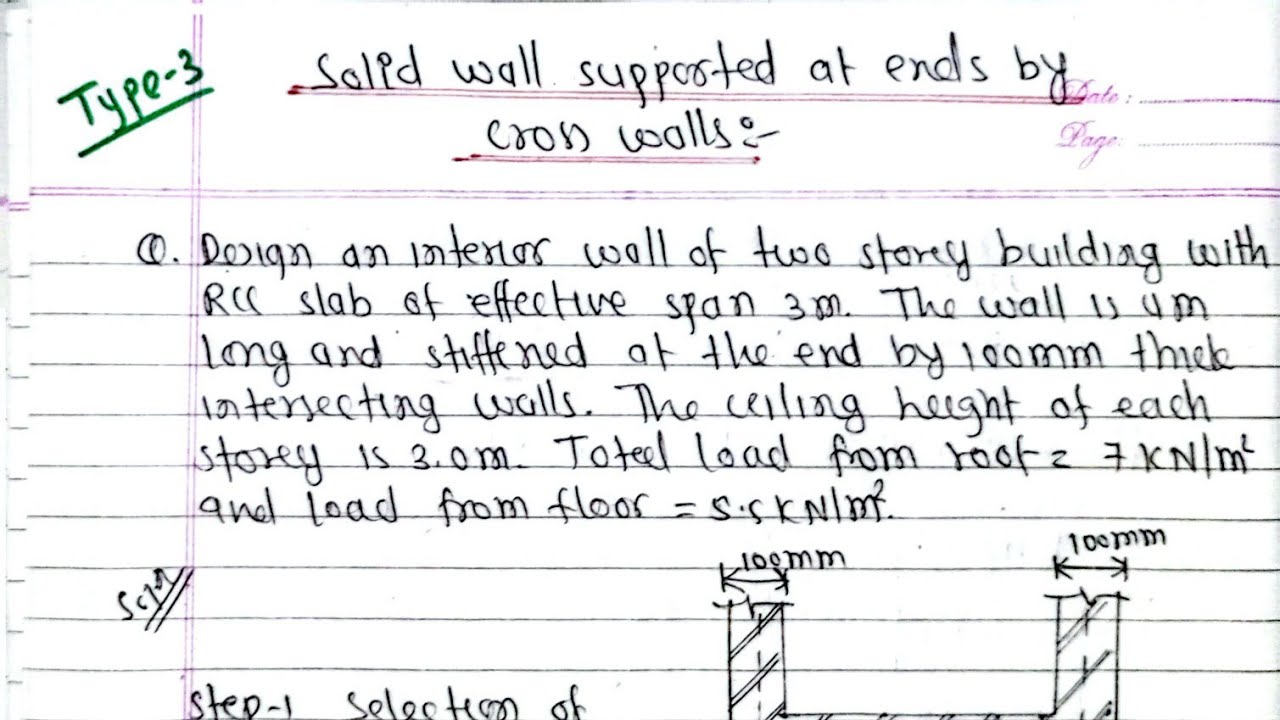 Type-3
Solid wall supported at ends by
cross walls:-
Date :
Page:
Q. Design an interior wall of two storey building with
RCC slab of effective span 3m. The wall is 4m
long and stiffened at the end by 100mm thick
intersecting walls. The ceiling height of each
storey is 3.0m. Total load from roof = 7KN/m²
and load from floor = 5.5KN/m².
100mm
100mm
Soln
Step-1 Selection of